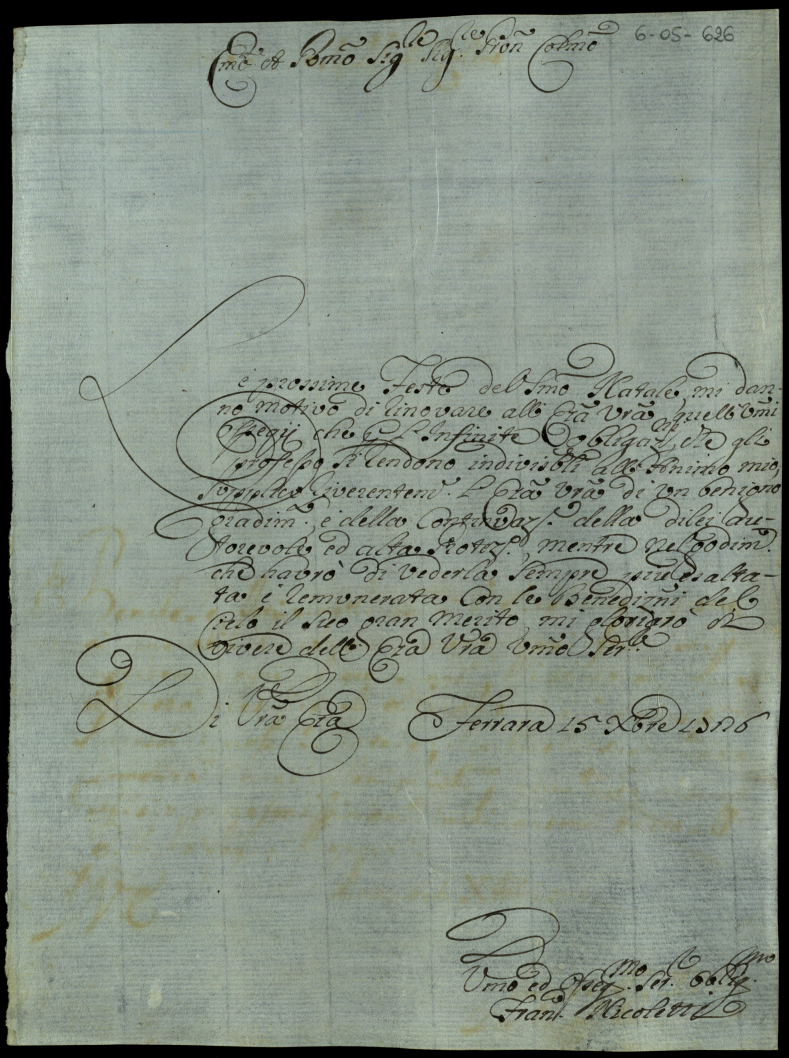 6-05-626
Emo et Rmo Sigre Sigre Pron Colmo
Le prossime Feste del Smo Natale mi dan-
no motivo di rinovare all' Eza Vra quell' umi
ossequij che le Infinite obbligazni che gli
professo si rendono indivisibli all' Animo mio,
supplico riverentemte l' Eza Vra di un benigno
gradimto, e della Continuazne della dilei au-
torevole, ed alta Protezne, mentre nel godimto
che havrò di vederla sempre più esalta-
ta e remunerata con le Benedizni del
Cielo il suo gran Merito, mi glorierò di
vivere dell' Eza Vra Umo Serre
Di Vra Eza Ferrara 15 Xbre 1726
Umo ed Osseqmo Ser. Obblgmo
Franco Nicoletti